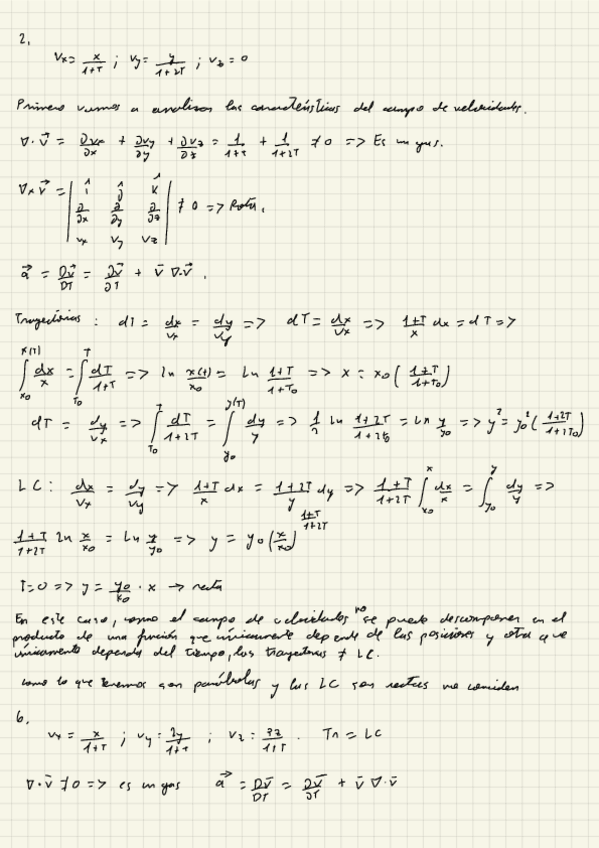 2.
Vx = x/(1+T) ; Vy = y/(1+2T) ; Vz = 0
Primero vamos a analizar las características del campo de velocidades.
∇·v⃗ = ∂vx/∂x + ∂vy/∂y + ∂vz/∂z = 1/(1+T) + 1/(1+2T) ≠ 0 => Es un gas.
∇×v⃗ = | î ĵ k̂ ; ∂/∂x ∂/∂y ∂/∂z ; vx vy vz | ≠ 0 => Rota.
a⃗ = Dv⃗/DT = ∂v⃗/∂T + v̄ ∇·v̄ .
Trayectorias : dT = dx/vx = dy/vy => dT = dx/vx => (1+T)/x dx = dT =>
∫_{x0}^{x(T)} dx/x = ∫_{T0}^{T} dT/(1+T) => ln x(t)/x0 = ln (1+T)/(1+T0) => x = x0 ((1+T)/(1+T0))
dT = dy/vx => ∫_{T0}^{T} dT/(1+2T) = ∫_{y0}^{y(T)} dy/y => 1/2 ln (1+2T)/(1+2T0) = ln y/y0 => y² = y0² ((1+2T)/(1+2T0))
LC : dx/vx = dy/vy => (1+T)/x dx = (1+2T)/y dy => (1+T)/(1+2T) ∫_{x0}^{x} dx/x = ∫_{y0}^{y} dy/y =>
(1+T)/(1+2T) ln x/x0 = ln y/y0 => y = y0 (x/x0)^{(1+T)/(1+2T)}
T=0 => y = y0/x0 · x → recta
En este caso, como el campo de velocidades no se puede descomponer en el
producto de una función que únicamente depende de las posiciones y otra que
únicamente dependa del tiempo, las trayectorias ≠ LC.
como lo que tenemos son parábolas y las LC son rectas no coinciden
6.
vx = x/(1+T) ; vy = 2y/(1+T) ; vz = 3z/(1+T) . Tn = LC
∇·v̄ ≠ 0 => es un gas a⃗ = Dv̄/DT = ∂v̄/∂T + v̄ ∇·v̄